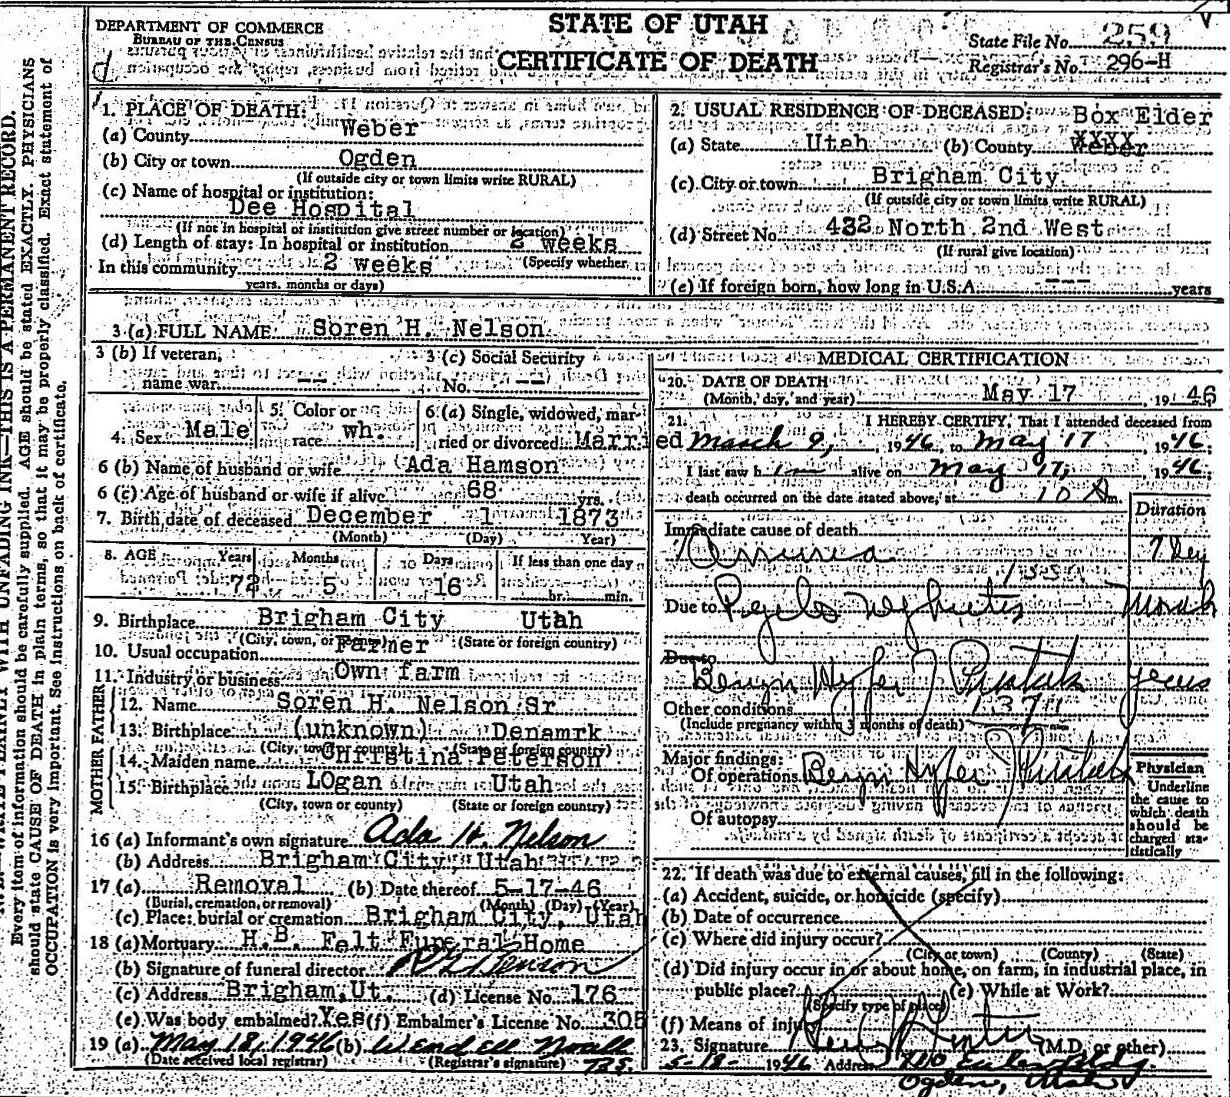 DEPARTMENT OF COMMERCE
BUREAU OF THE CENSUS
STATE OF UTAH
CERTIFICATE OF DEATH
State File No. 259
Registrar's No. 296-H
1. PLACE OF DEATH:
(a) County Weber
(b) City or town Ogden
(If outside city or town limits write RURAL)
(c) Name of hospital or institution:
Dee Hospital
(If not in hospital or institution give street number or location)
(d) Length of stay: In hospital or institution 2 weeks
(Specify whether
In this community 2 weeks
years, months or days)
2. USUAL RESIDENCE OF DECEASED:
Box Elder
(a) State Utah (b) County Weber
XXXX
(c) City or town Brigham City
(If outside city or town limits write RURAL)
(d) Street No. 432 North 2nd West
(If rural give location)
(e) If foreign born, how long in U.S.A. --- years
3 (a) FULL NAME Soren H. Nelson
3 (b) If veteran, name war --
3 (c) Social Security No. --
4. Sex Male
5. Color or race wh.
6 (a) Single, widowed, married or divorced Married
6 (b) Name of husband or wife Ada Hamson
6 (c) Age of husband or wife if alive 68 yrs.
7. Birth date of deceased December 1 1873
(Month) (Day) Year)
8. AGE Years Months Days If less than one day
72 5 16 hr. min.
9. Birthplace Brigham City Utah
(City, town, or county) (State or foreign country)
10. Usual occupation Farmer
11. Industry or business Own farm
FATHER
12. Name Soren H. Nelson Sr
13. Birthplace (unknown) Denamrk
(City, town or county) (State or foreign country)
MOTHER
14. Maiden name Christina Peterson
15. Birthplace LOgan Utah
(City, town or county) (State or foreign country)
16 (a) Informant's own signature Ada H. Nelson
(b) Address Brigham City, Utah
17 (a) Removal (b) Date thereof 5-17-46
(Burial, cremation, or removal) (Month) (Day) (Year)
(c) Place: burial or cremation Brigham City, Utah
18 (a) Mortuary H.B. Felt Funeral Home
(b) Signature of funeral director
(c) Address Brigham, Ut. (d) License No. 176
(e) Was body embalmed? Yes (f) Embalmer's License No. 305
19 (a) May 18, 1946 (b) Wendell
(Date received local registrar) (Registrar's signature)
MEDICAL CERTIFICATION
20. DATE OF DEATH May 17, 1946
(Month, day, and year)
21. I HEREBY CERTIFY, That I attended deceased from
March 9, 1946, to May 17, 1946.
I last saw h alive on May 17, 1946.
death occurred on the date stated above, at 10 A m.
Duration
Immediate cause of death
Due to Pyelo Nephritis Month
Due to
Benign Hyper of Prostate years
Other conditions 137a
(Include pregnancy within 3 months of death)
Major findings:
Of operations Benign Hyper Prostate
Of autopsy
Physician
Underline the cause to which death should be charged statistically
22. If death was due to external causes, fill in the following:
(a) Accident, suicide, or homicide (specify)
(b) Date of occurrence
(c) Where did injury occur?
(City or town) (County) (State)
(d) Did injury occur in or about home, on farm, in industrial place, in
public place? (e) While at Work?
(Specify type of place)
(f) Means of injury
23. Signature (M.D. or other)
5-18-1946 Address Bldg.
Ogden, Utah
Every item of information should be carefully supplied. AGE should be stated EXACTLY. PHYSICIANS
should state CAUSE OF DEATH in plain terms, so that it may be properly classified. Exact statement of
OCCUPATION is very important. See instructions on back of certificate.